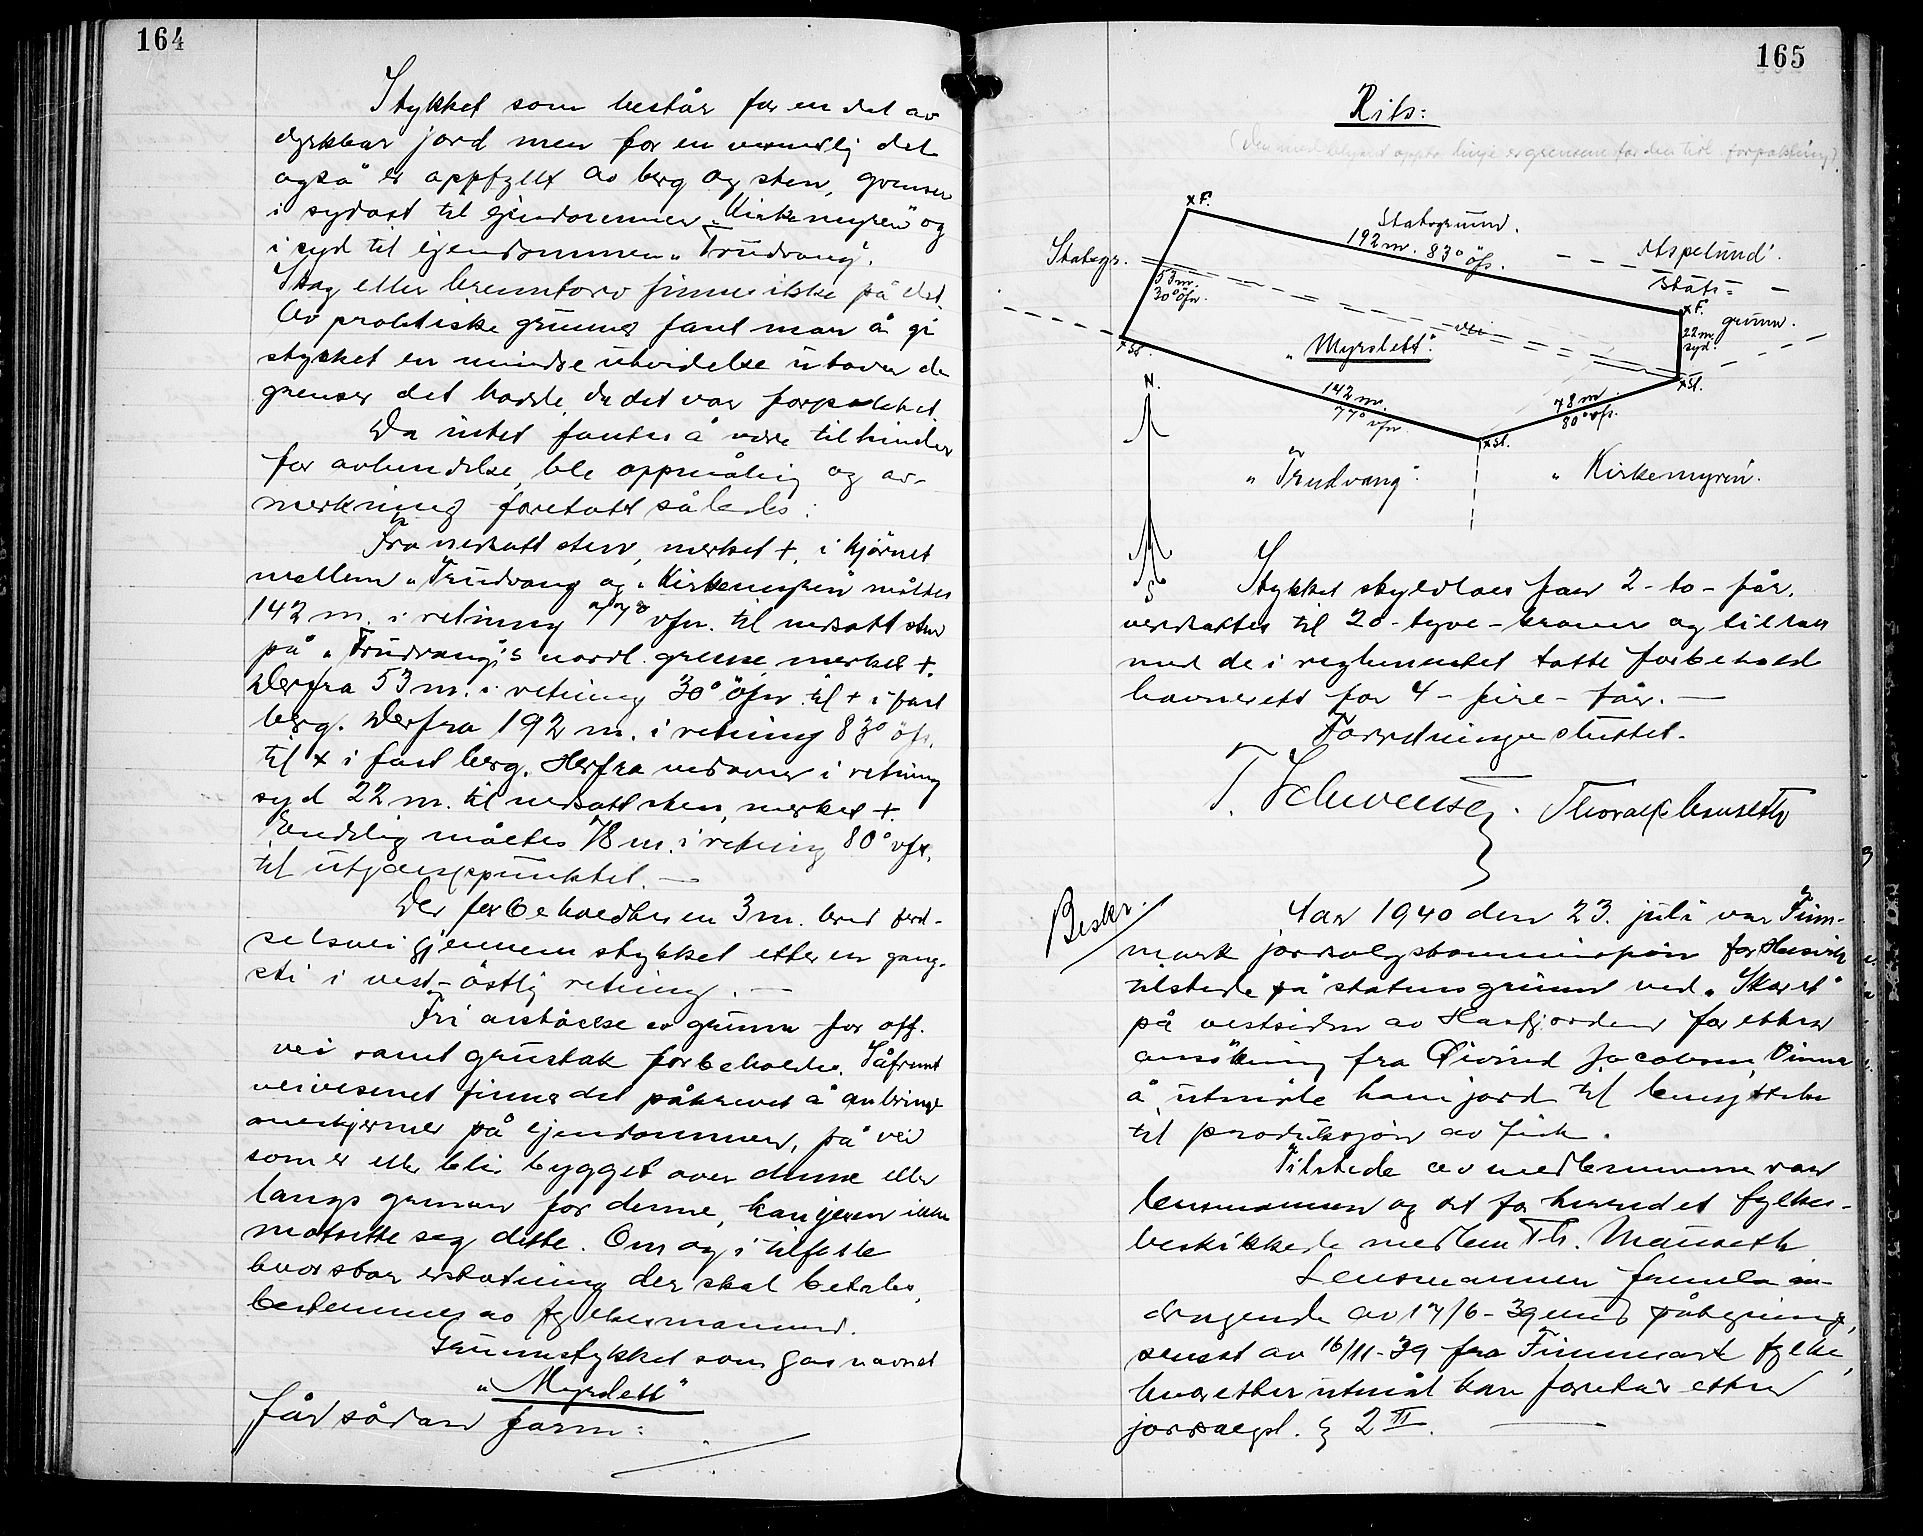 164
Stykket som består for en del av
dyrkbar jord men for en vesentlig del
også er oppfyllt av berg og sten, grenser
i sydost til eiendommen „Kirkemyren" og
i syd til ejendommen „Trudvang".
Skog eller brenntorv finnes ikke på det.
Av praktiske grunner fant man å gi
stykket en mindre utvidelse utover de
grenser det hadde da det var forpaktet.
Da intet fantes å være til hinder
for avhendelse, ble oppmåling og av-
merkning foretatt således:
Fra nedsatt sten, merket +, i hjørnet
mellem „Trudvang og „Kirkemyren" måltes
142 m. i retning 77° vfn. til nedsatt sten
på „Trudvang"s nordl. grense merket +.
Derfra 53 m. i retning 30° öfn. til + i fast
berg. Derfra 192 m. i retning 83° öfs.
til + i fast berg. Herfra nedover i retning
syd 22 m. til nedsatt sten, merket +.
Endelig måltes 78 m. i retning 80° vfs.
til utgangspunktet. —
Der forbeholdtes en 3 m. bred ferd-
selsvei gjennem stykket etter en gang-
sti i vest-östlig retning. —
Fri avståelse av grunn for off.
vei samt grustak forbeholdes. Såfremt
veivesenet finner det påkrevet å anbringe
sneskjermer på ejendommen, på vei
som er eller blir bygget over denne eller
langs grensen for denne, kan ejeren ikke
motsette seg dette. Om og i tilfelle
hvor stor erstatning der skal betales,
bestemmes av fylkesmannen.
Grunnstykket som gas navnet
„Myrslett"
får sådan form:
165
Riss:
(Den med blyant opptr. linje er grensene for den tidl. forpaktning)
x F.
Statsgrunn.
192 m. 83° öfs.
Statsgr.
„Aspelund".
Stats-
53 m.
30° öfn.
x F.
grunn.
22 m
syd.
vei
„Myrslett".
x St.
x St.
N.
142 m.
77° vfn.
78 m
80° vfs.
x St.
„Trudvang".
„Kirkemyren".
S
Stykket skyldsaes for 2 - to - får.
verdsattes til 20 - tyve - kroner og tillas
med de i reglementet tatte forbehold
havnerett for 4 - fire - får. —
Forretningen sluttet.
T. Schweensen. Thoralf Mauseth
Beskr.
Aar 1940 den 23. juli var Finn-
mark jordsalgskommisjon for Hasvik
tilstede på statens grunn ved „Skaret"
på vestsiden av Hasfjorden for etter
ansökning fra Øivind Jacobsen,
å utmåle ham jord til benyttelse
til produksjon av fisk.
Tilstede av medlemmene var
lensmannen og det for herredet fylkes-
beskikkede medlem Th. Mauseth
Lensmannen fremla an-
dragende av 17/6-39 med påtegning,
senest av 16/11-39 fra Finnmark fylke,
hvoretter utmål kan foretas etter
jordsalgsl. § 2 II. —